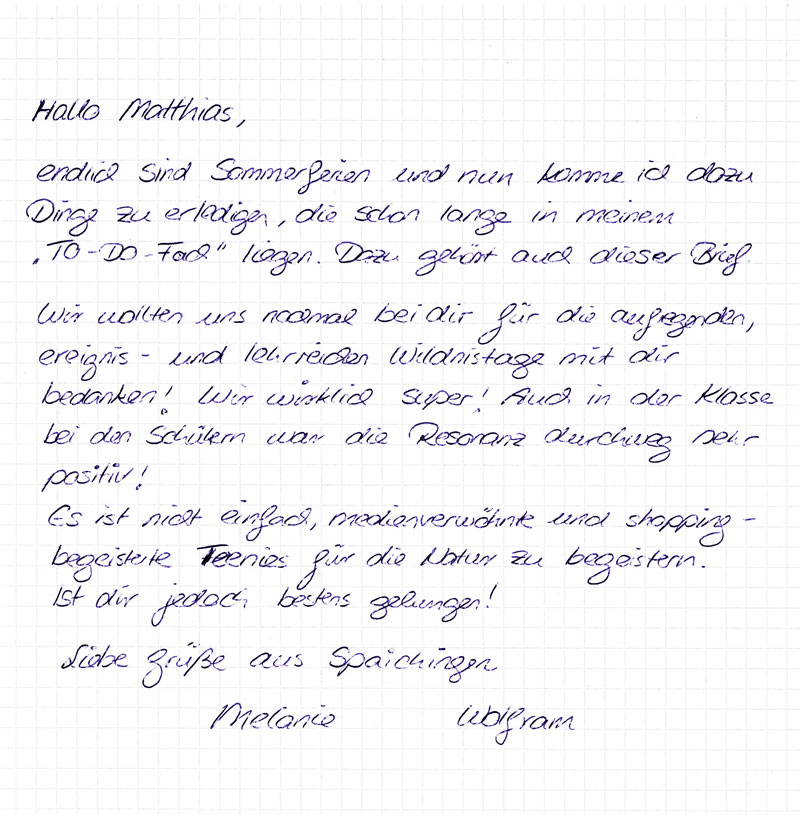 Hallo Matthias,
endlich sind Sommerferien und nun komme ich dazu
Dinge zu erledigen, die schon lange in meinem
„TO-DO-Fach" liegen. Dazu gehört auch dieser Brief.
Wir wollten uns nochmal bei dir für die aufregenden,
ereignis- und lehrreichen Wildnistage mit dir
bedanken! Wir wirklich super! Auch in der Klasse
bei den Schülern war die Resonanz durchweg sehr
positiv!
Es ist nicht einfach, medienverwöhnte und shopping-
begeisterte Teenies für die Natur zu begeistern.
Ist dir jedoch bestens gelungen!
Liebe Grüße aus Spaichingen
Melanie Wolfram